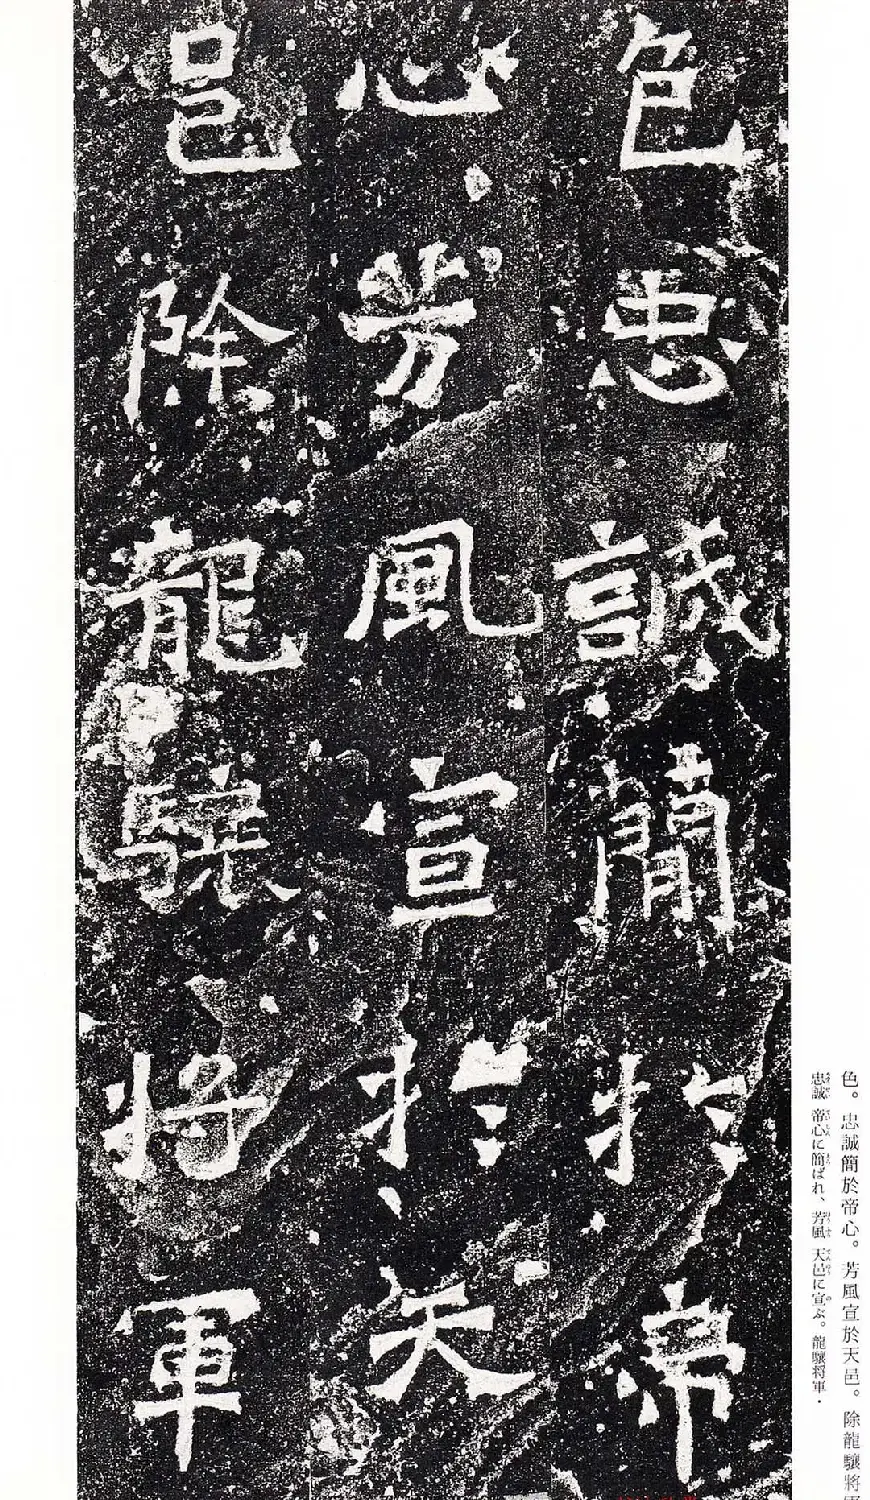 色忠誠簡於帝
心芳風宣於天
邑除龍驤將軍
色。忠誠簡於帝心。芳風宣於天邑。除龍驤將軍
忠誠 帝心に簡ばれ、芳風 天邑に宣ぶ。龍驤将軍・